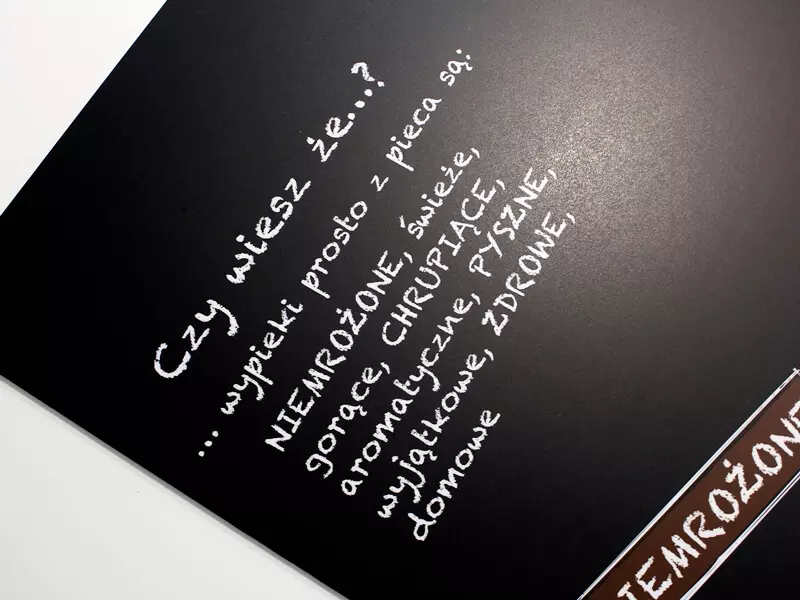 Czy wiesz że...?
... wypieki prosto z pieca są:
NIEMROŻONE, świeże,
gorące, CHRUPIĄCE,
aromatyczne, PYSZNE,
wyjątkowe, ZDROWE,
domowe
IEMROŻONE